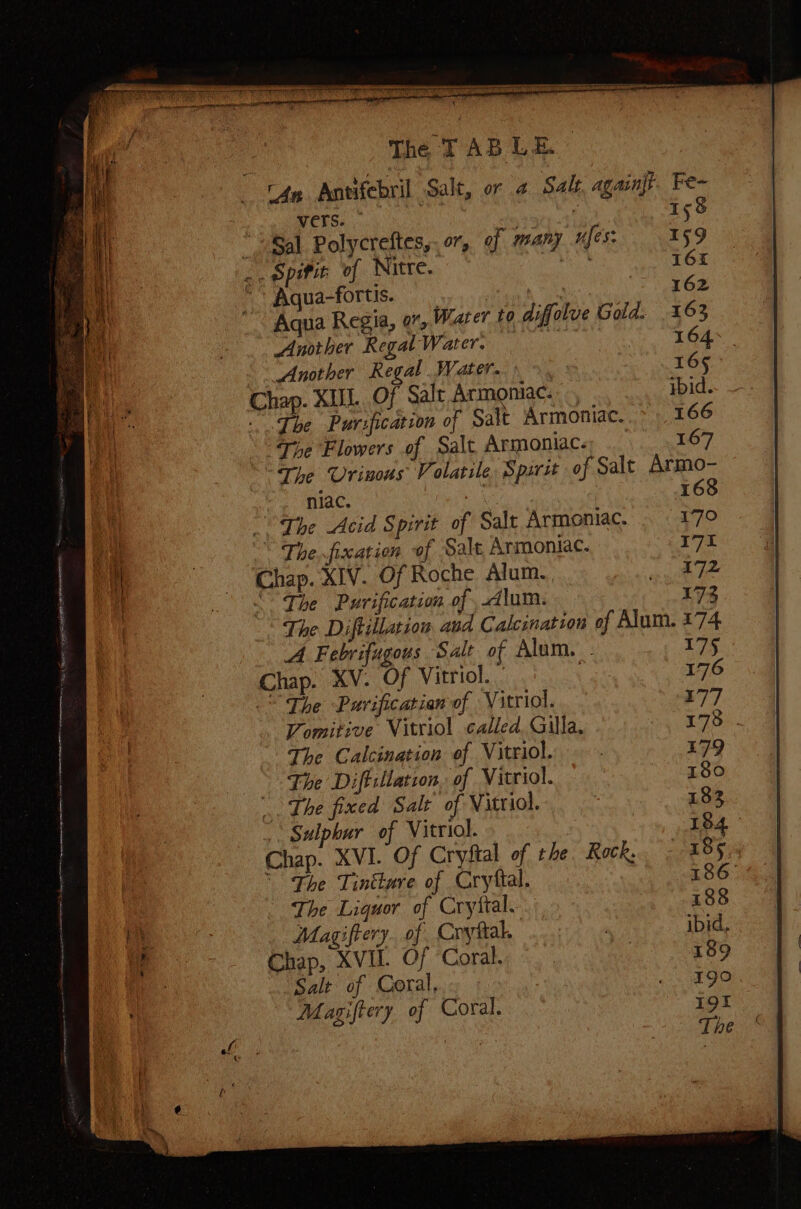 The TABLE.
An Antifebril Salt, or a Salt againſt Fe-
vers. 158
Sal Polycreſtes, or, of many uſes: 159
Spirit of Nitre. 161
Aqua-fortis. 162
Aqua Regia, or, Water to diſſolve Gold. 163
Another Regal Water. 164
Another Regal Water. 165
Chap. XIII. Of Salt Armoniac. ibid.
The Purification of Salt Armoniac. 166
The Flowers of Salt Armoniac. 167
The Urinous Volatile Spirit of Salt Armo-
niac. 168
The Acid Spirit of Salt Armoniac. 170
The fixation of Salt Armoniac. 171
Chap. XIV. Of Roche Alum. 172
The Purification of Alum. 173
The Diſtillation and Calcination of Alum. 174
A Febrifugous Salt of Alum. 175
Chap. XV. Of Vitriol. 176
The Purification of Vitriol. 177
Vomitive Vitriol called Gilla. 178
The Calcination of Vitriol. 179
The Diſtillation of Vitriol. 180
The fixed Salt of Vitriol. 183
Sulphur of Vitriol. 184
Chap. XVI. Of Cryſtal of the Rock. 185
The Tincture of Cryſtal. 186
The Liquor of Cryſtal. 188
Magiſtery of Cryſtal. ibid.
Chap, XVII. Of Coral. 189
Salt of Coral, 190
Magiſtery of Coral. 191
The